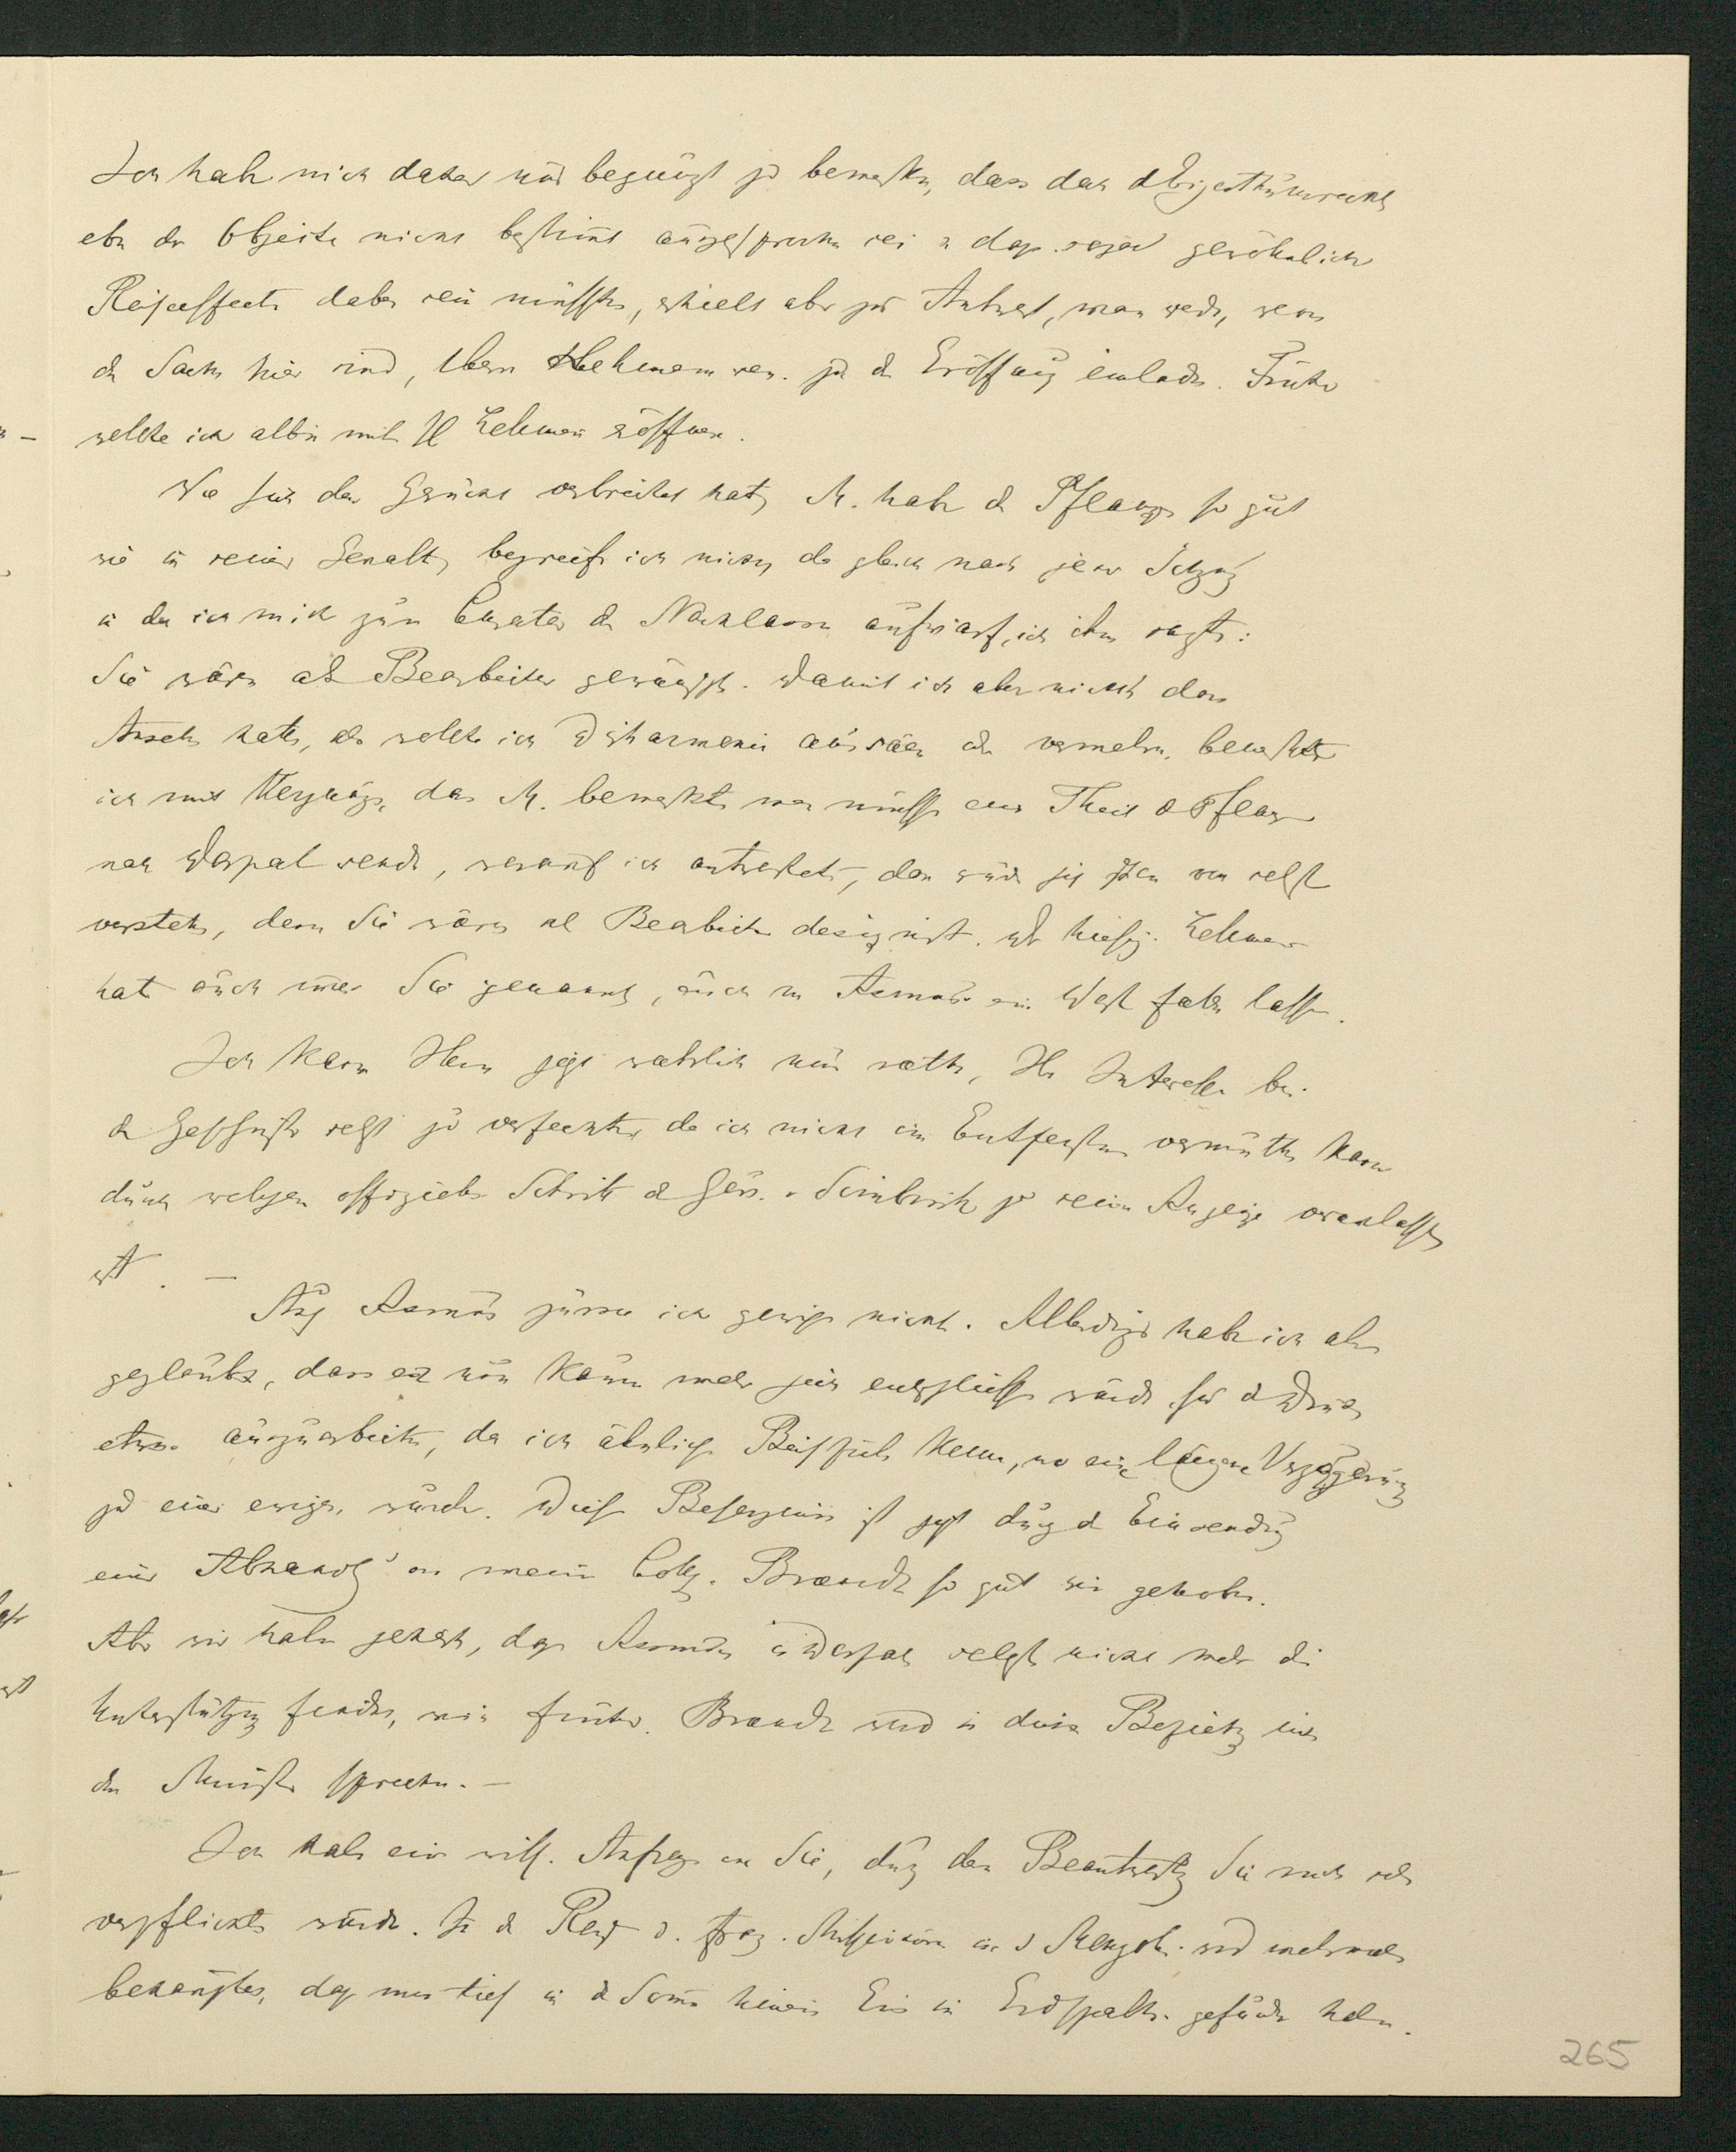 Ich habe mich daher nur begnügt zu bemerken, dass das Eigenthumsrecht
eben der Objecte nicht bestimt ausgesprochen sei u. dass sogar gewöhnliche
Reiseeffecte dabei sein müssten, erhielt aber zur Antwort, man werde, wenn
die Sachen hier sind, Lehmann sen. zu der Eröffnung einladen. Früher
wollte ich allein mit H Lehman eröffnen.
Wie sich das Gerücht verbreitet hat, M. habe die Pflanzen so gut
wie in seiner Gewalt, begreife ich nicht, da gleich nach jener Sitzung
in der ich mich zum Curator des Nachlasses aufwarf, ich ihm sagte:
Sie wären als Bearbeiter gewünscht. Damit ich aber nicht das
Ansehen hätte, als wollte ich Disharmonie aussäen oder vermehren, bemerkte
ich mit Vergnügen, das M. bemerkte man müsse einen Theil der Pflanzen
nach Dorpat senden, worauf ich antwortete, das würde sich von selbst
verstehen, denn Sie wären als Bearbeiter designirt. Lehmann
hat auch immer Sie genannt, auch von Asmuss ein Wort fallen lassen.
Ich kann Ihnen jetzt wahrlich nur rathen, Ihr Interesse bei
der Geschichte selbst zu verfechten da ich nicht im Entferntesten vermuthen kann
durch welchen offiziellen Schritt der Gen. zu seiner Anzeige veranlasst
ist. —
Asmus zürne ich gewiss nicht. Allerdings habe ich aber
geglaubt, dass er nun kaum mehr sich entschliessen würde für den Druck
etwas auszuarbeiten, da ich ähnliche Beispiele kenne, wo eine längere Verzögerung
zu einer ewigen wurde. Diese Besorgniss ist jetzt durch die Einsendung
einer Abhandlg an meinen Colleg. Brandt so gut wie gehoben.
Aber wir haben gehört, dass Asmuss in Dorpat selbst nicht mehr die
Unterstützung findet, wie früher. Brandt wird in dieser Beziehung mit
dem Minister sprechen. —
Ich habe eine wiss. Anfrage an Sie, durch deren Beantwortg Sie mich sehr
verpflichten würden. In der Reise d. franz. Missionäre in d. Mongolei wird mehrmals
behauptet, dass man tief in den Sommer hinein Eis in Erdspalten gefunden habe.
265